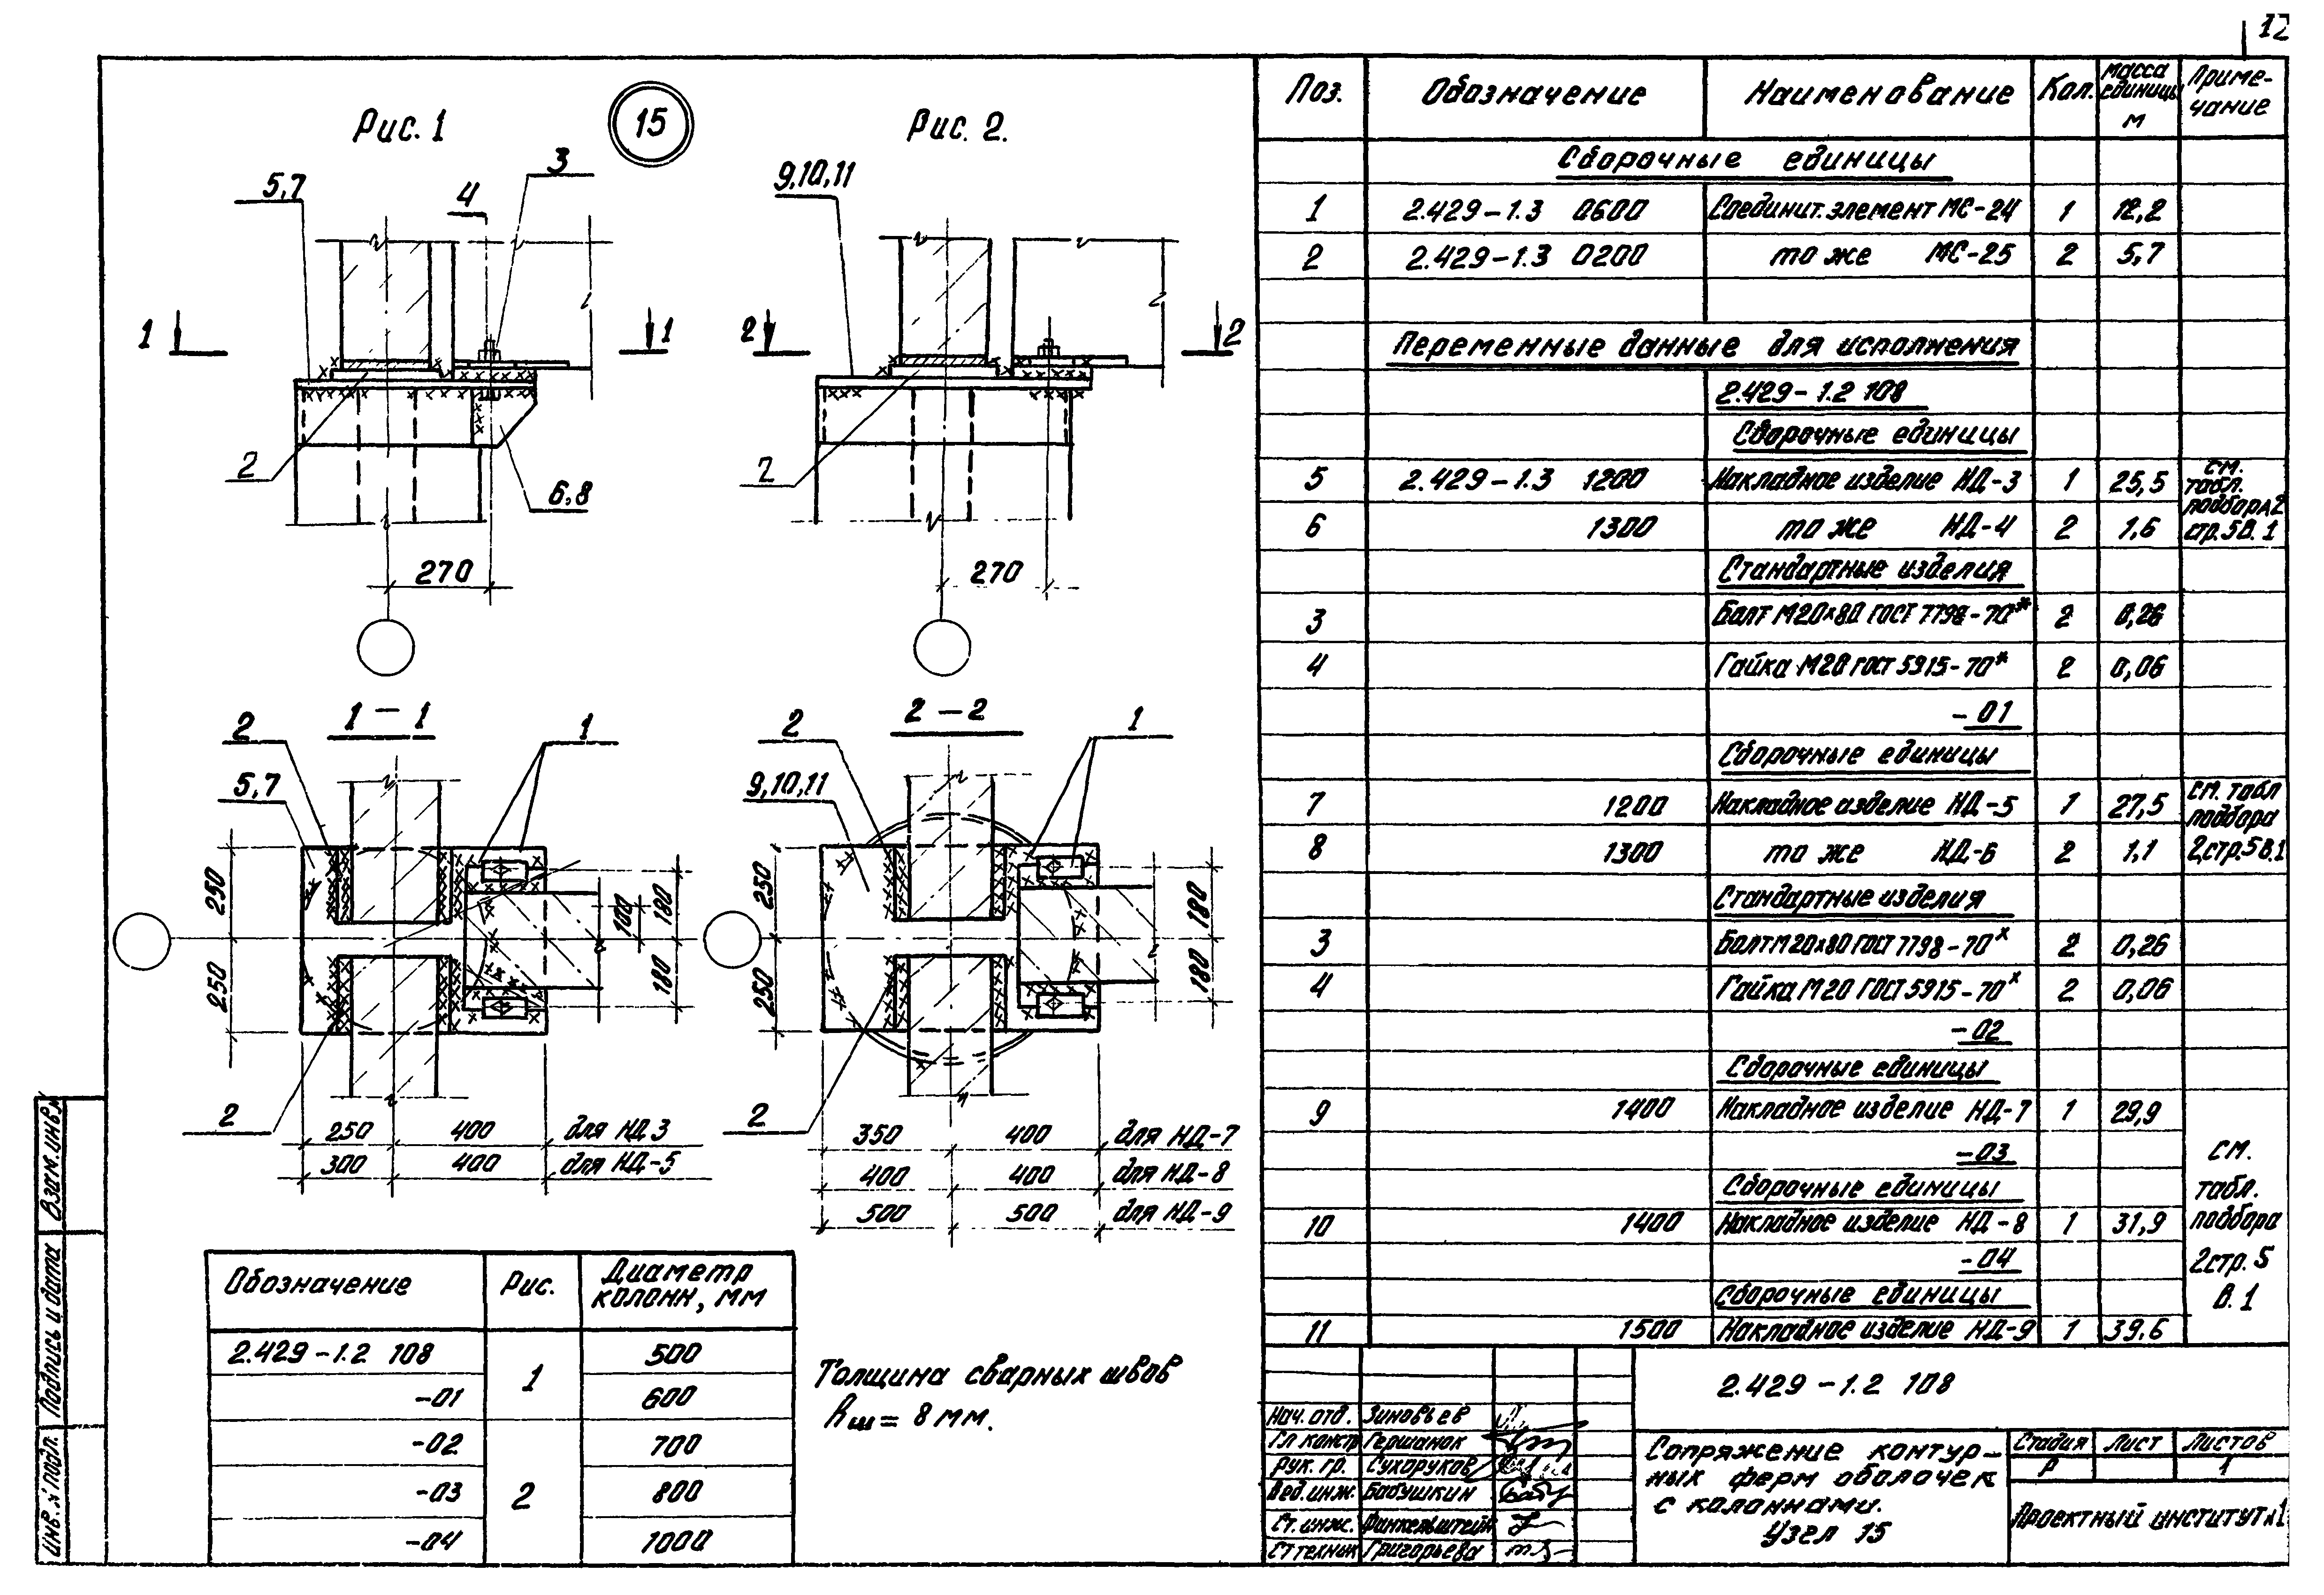 12
Рис. 1
15
Рис. 2.
5,7
4
3
9,10,11
1
1
2
2
2
6,8
2
270
270
1 – 1
2 – 2
2
1
2
1
5,7
9,10,11
250
250
100
180
180
250
250
180
180
2
2
250 400 для НД 3
300 400 для НД-5
350 400 для НД-7
400 400 для НД-8
500 500 для НД-9
Обозначение Рис. Диаметр колонн, мм
2.429-1.2 108 1 500
-01 600
-02 2 700
-03 800
-04 1000
Толщина сварных швов
hш = 8 мм.
Поз. Обозначение Наименование Кол. масса единицы м Приме-чание
Сборочные единицы
1 2.429-1.3 0600 Соединит. элемент МС-24 1 12,2
2 2.429-1.3 0200 то же МС-25 2 5,7
Переменные данные для исполнения
2.429-1.2 108
Сборочные единицы
5 2.429-1.3 1200 Накладное изделие НД-3 1 25,5 см. табл. подбора 2
6 1300 то же НД-4 2 1,6 стр. 5 В. 1
Стандартные изделия
3 Болт М20х80 ГОСТ 7798-70* 2 0,26
4 Гайка М20 ГОСТ 5915-70* 2 0,06
-01
Сборочные единицы
7 1200 Накладное изделие НД-5 1 27,5 см. табл подбора
8 1300 то же НД-6 2 1,1 2,стр.5 В.1
Стандартные изделия
3 Болт М20х80 ГОСТ 7798-70х 2 0,26
4 Гайка М20 ГОСТ 5915-70х 2 0,06
-02
Сборочные единицы
9 1400 Накладное изделие НД-7 1 29,9
-03 см.
Сборочные единицы табл.
10 1400 Накладное изделие НД-8 1 31,9 подбора
-04 2стр. 5
Сборочные единицы в. 1
11 1500 Накладное изделие НД-9 1 39,6
2.429-1.2 108
Нач. отд. Зиновьев
Гл констр Гершанок
Рук. гр. Сухоруков
Вед. инж. Бабушкин
Ст. инж. Финкельштейн
Ст техник Григорьева
Сопряжение контур-
ных ферм оболочек
с колоннами.
Узел 15
Стадия Лист Листов
Р 1
Проектный институт №1
Взам. инв.№
Подпись и дата
Инв. № подл.